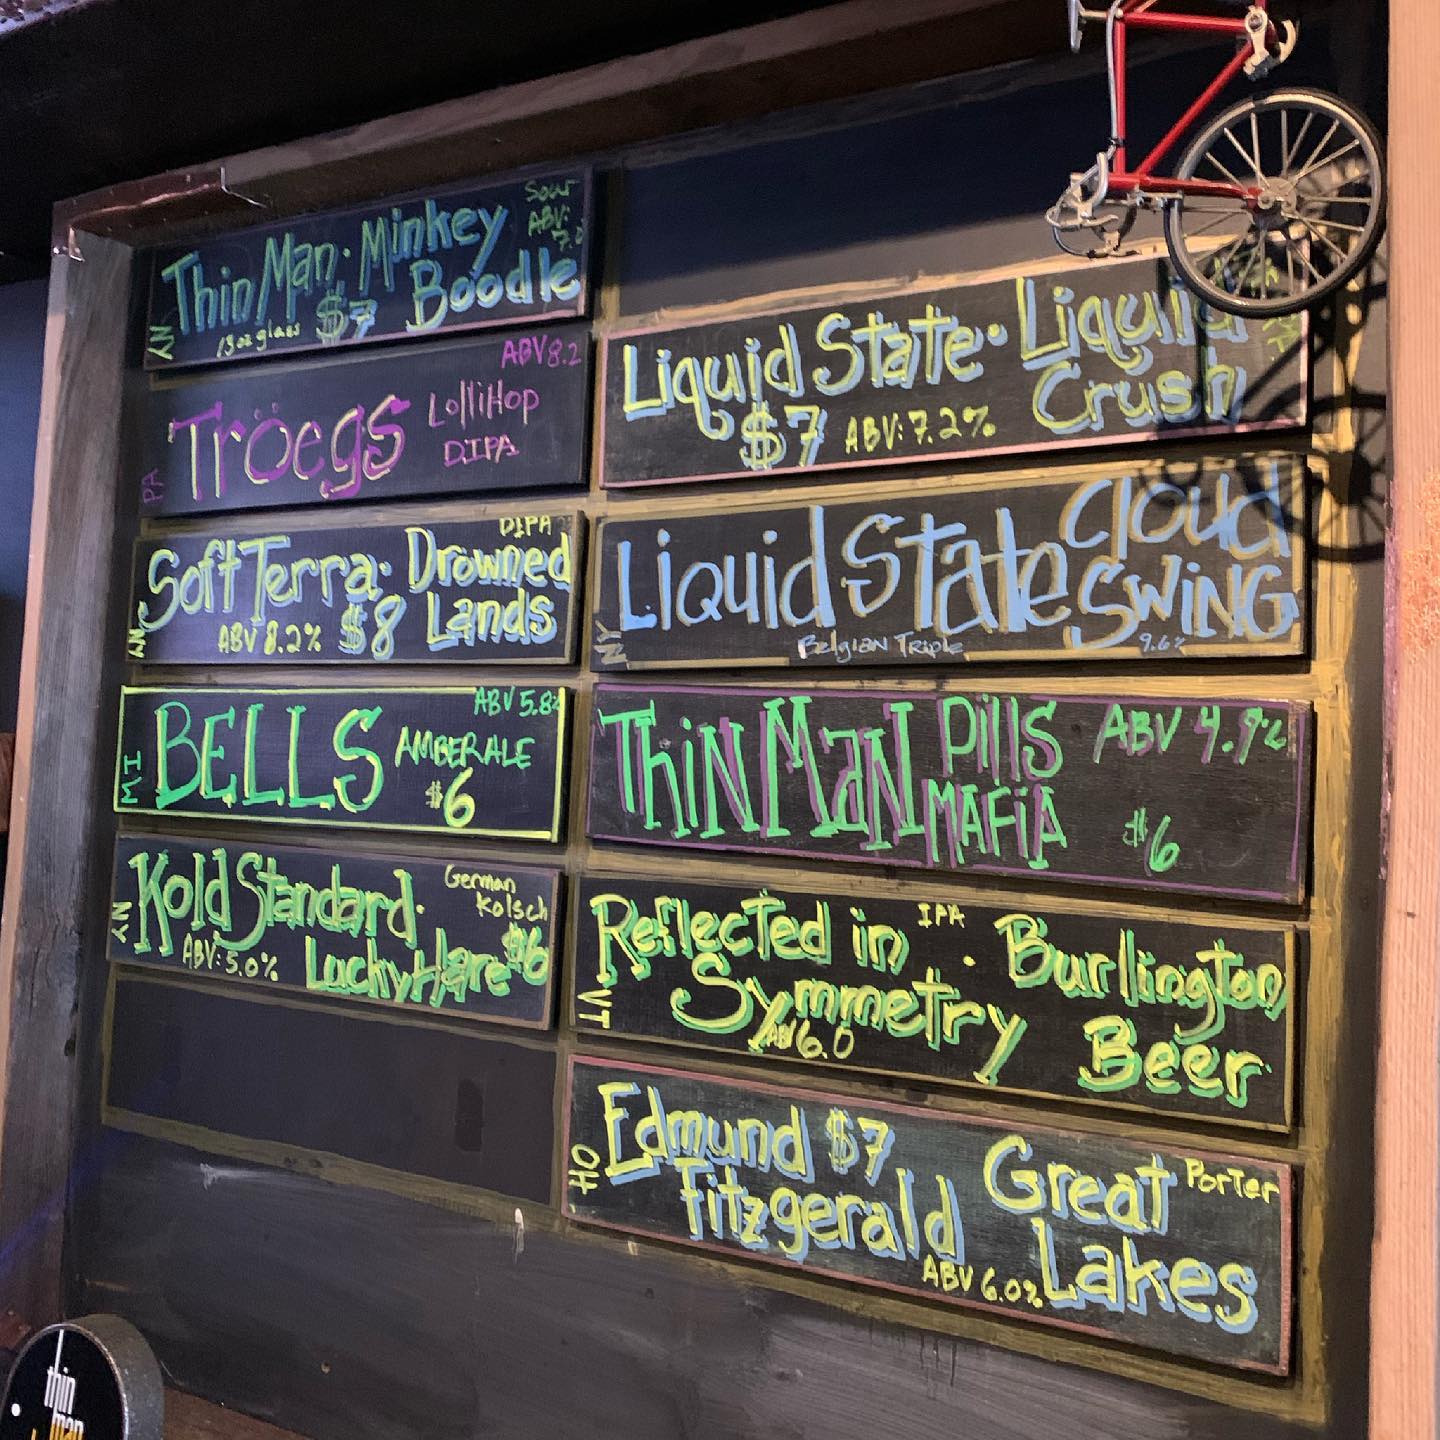 Thin Man · Minkey Boodle
Sour
ABV:
7.0
NY
13 oz glass $7
Tröegs LolliHop
DIPA
ABV 8.2
PA
Soft Terra · Drowned Lands
DIPA
NY
ABV 8.2% $8
BELLS AMBER ALE
ABV 5.8%
MI
$6
Kold Standard · Lucky Hare
German
Kolsch
NY
ABV: 5.0%
$6
Liquid State · Liquid Crush
$7 ABV: 7.2%
Liquid State Cloud Swing
NY
Belgian Triple 9.6%
Thin Man Pills Mafia
ABV 4.9%
$6
Reflected in Symmetry · Burlington Beer
IPA
VT
ABV 6.0
Edmund Fitzgerald $7 Great Lakes
Porter
OH
ABV 6.0%
thin
man